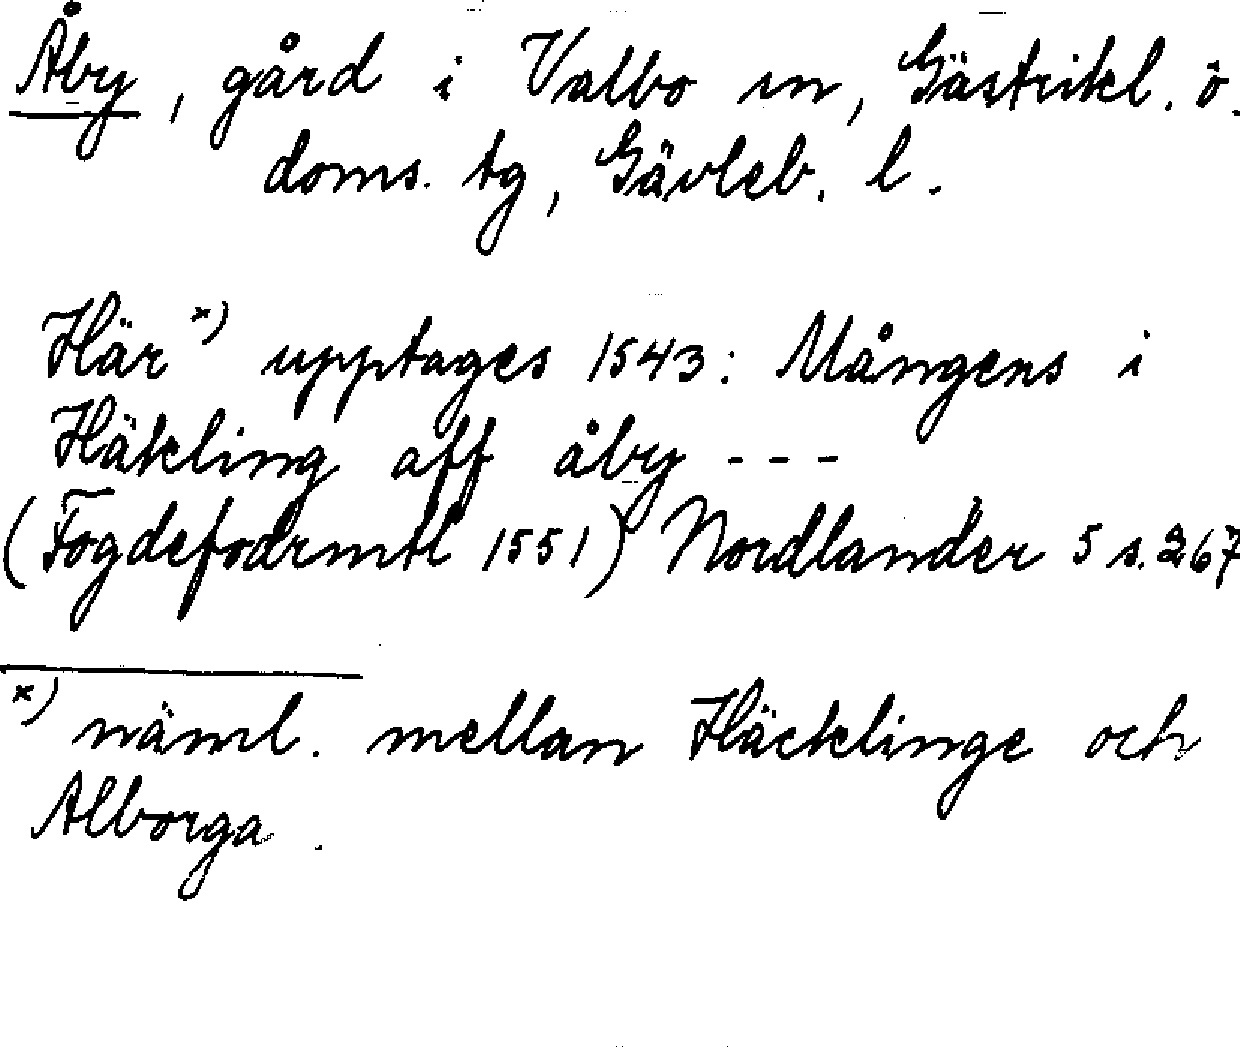 Åby, gård i Valbo sn, Gästrikl. ö.
doms. tg, Gävleb. l.
Här x) upptages 1543: Mångens i
Häkling aff åby ---
(Fogdefodrmtl 1551) Nordlander 5 s. 267
x) näml. mellan Häcklinge och
Alborga.